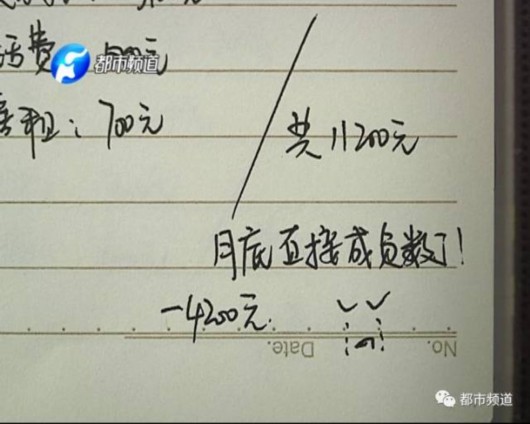 话费
都市频道
房租：700元
共11200元
月底直接成负数了！
-4200元
No. Date.
都市频道